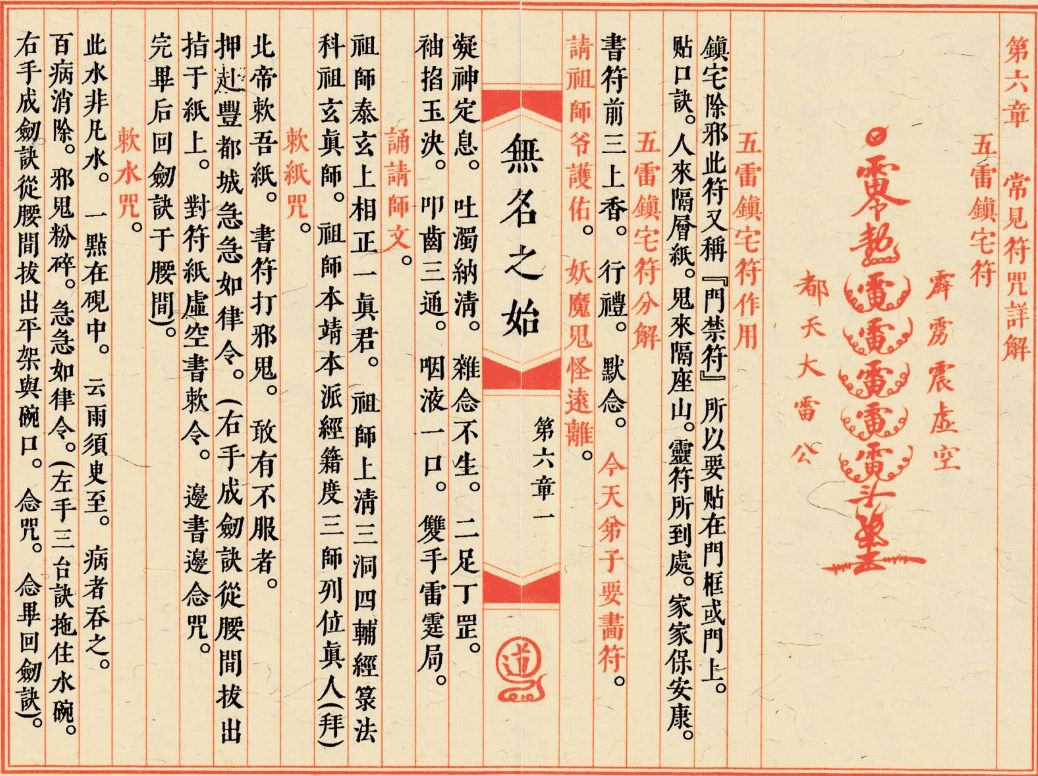 第六章　常見符咒詳解
五雷鎮宅符
霹靂震虛空
雷雷雷雷雷
都天大雷公
五雷鎮宅符作用
鎮宅除邪此符又稱『門禁符』所以要貼在門框或門上。
貼口訣。人來隔層紙。鬼來隔座山。靈符所到處。家家保安康。
五雷鎮宅符分解
書符前三上香。行禮。默念。今天弟子要畵符。
請祖師爷護佑。妖魔鬼怪遠離。
無名之始
第六章一
道
凝神定息。吐濁納清。雜念不生。二足丁罡。
袖掐玉決。叩齒三通。咽液一口。雙手雷霆局。
誦請師文。
祖師泰玄上相正一真君。祖師上淸三洞四輔經籙法
科祖玄真師。祖師本靖本派經籍度三師列位真人(拜)
敕紙咒。
北帝敕吾紙。書符打邪鬼。敢有不服者。
押赴豐都城急急如律令。(右手成劍訣從腰間拔出
指于紙上。對符紙虛空書敕令。邊書邊念咒。
完畢后回劍訣于腰間)。
敕水咒。
此水非凡水。一點在硯中。云雨須史至。病者吞之。
百病消除。邪鬼粉碎。急急如律令。(左手三台訣拖住水碗。
右手成劍訣從腰間拔出平架與碗口。念咒。念畢回劍訣)。